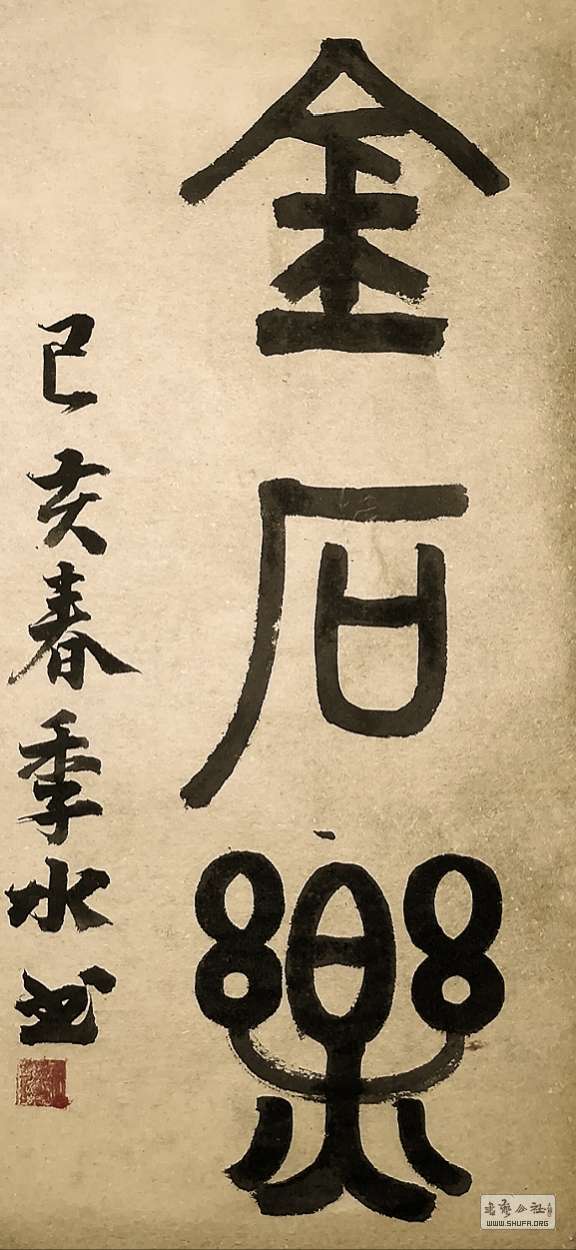 金石樂
己亥春季水书
书艺公社
WWW.SHUFA.ORG